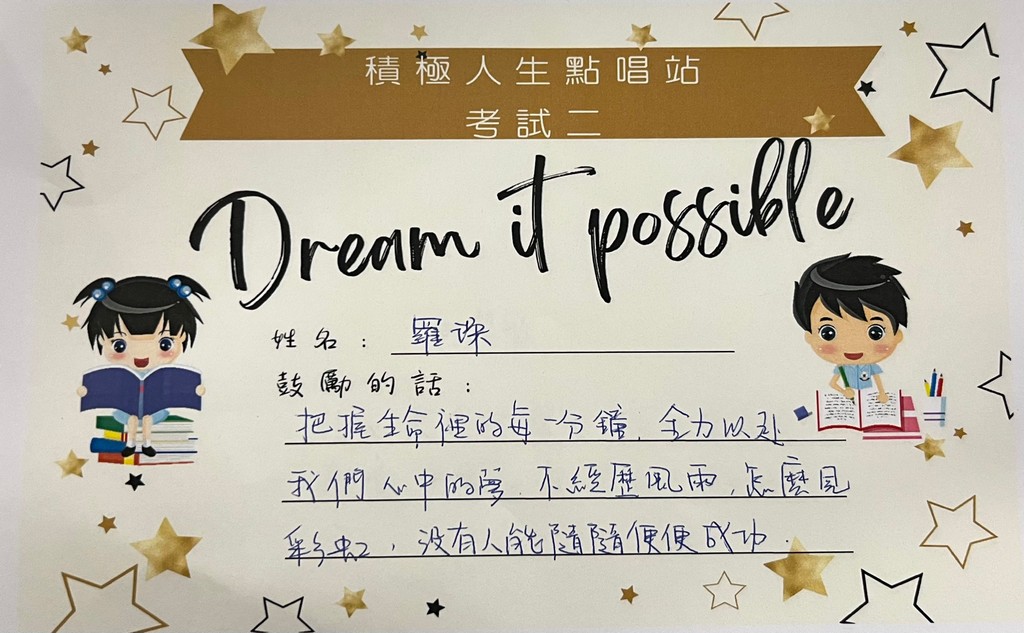 積極人生點唱站
考試二
Dream it possible
姓名：羅琛
鼓勵的話：
把握生命裡的每一分鐘，全力以赴
我們心中的夢，不經歷風雨，怎麼見
彩虹，沒有人能隨隨便便成功．